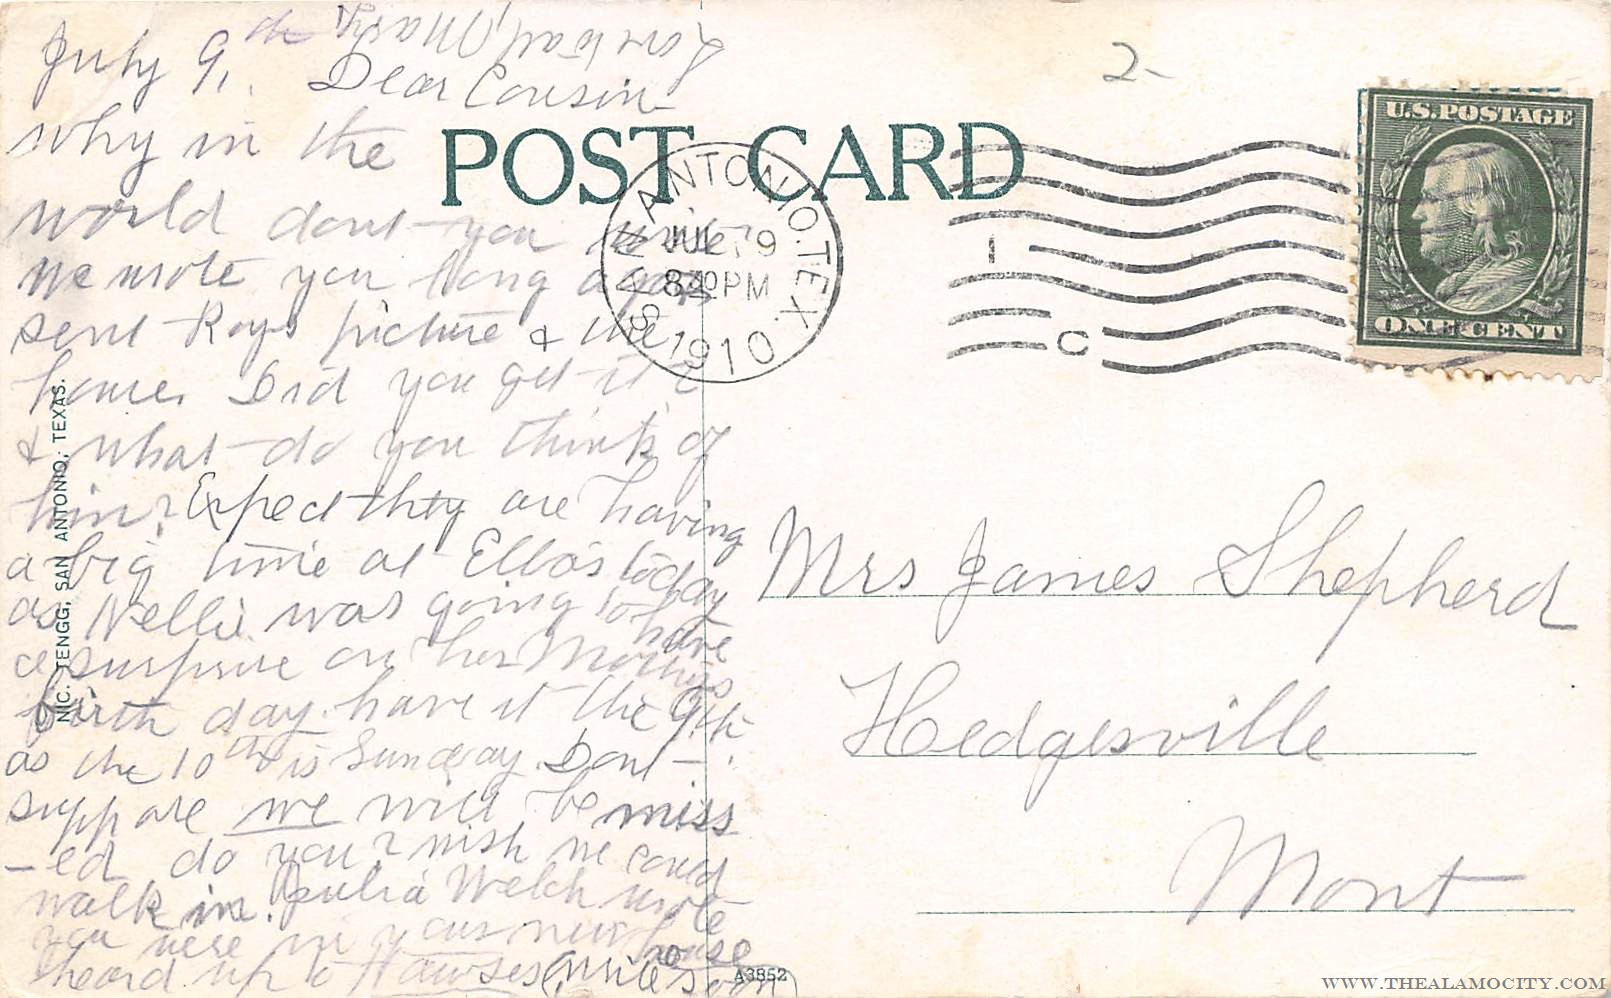 July 9, th
Dear Cousin
why in the
world dont you write
We wrote you long ago
sent Roys picture & the
home. Did you get it?
& what do you think of
him? Expect they are having
a big time at Ellas today
as Nellie was going to have
a surprise on her Mothers
birth day. have it the 9th
as the 10th is Sunday. Dont
suppose we will be miss
-ed, do you? wish we could
walk in. Julia Welch wrote
you were in your new house
heard up to Hawses (write soon)
Love to all, Mary
POST CARD
SAN ANTONIO, TEX.
JUL 9
830 PM
1910
1
C
2-
U.S. POSTAGE
ONE CENT
Mrs James Shepherd
Hedgesville
Mont
NIC. TENGG, SAN ANTONIO, TEXAS.
A3852
WWW.THEALAMOCITY.COM